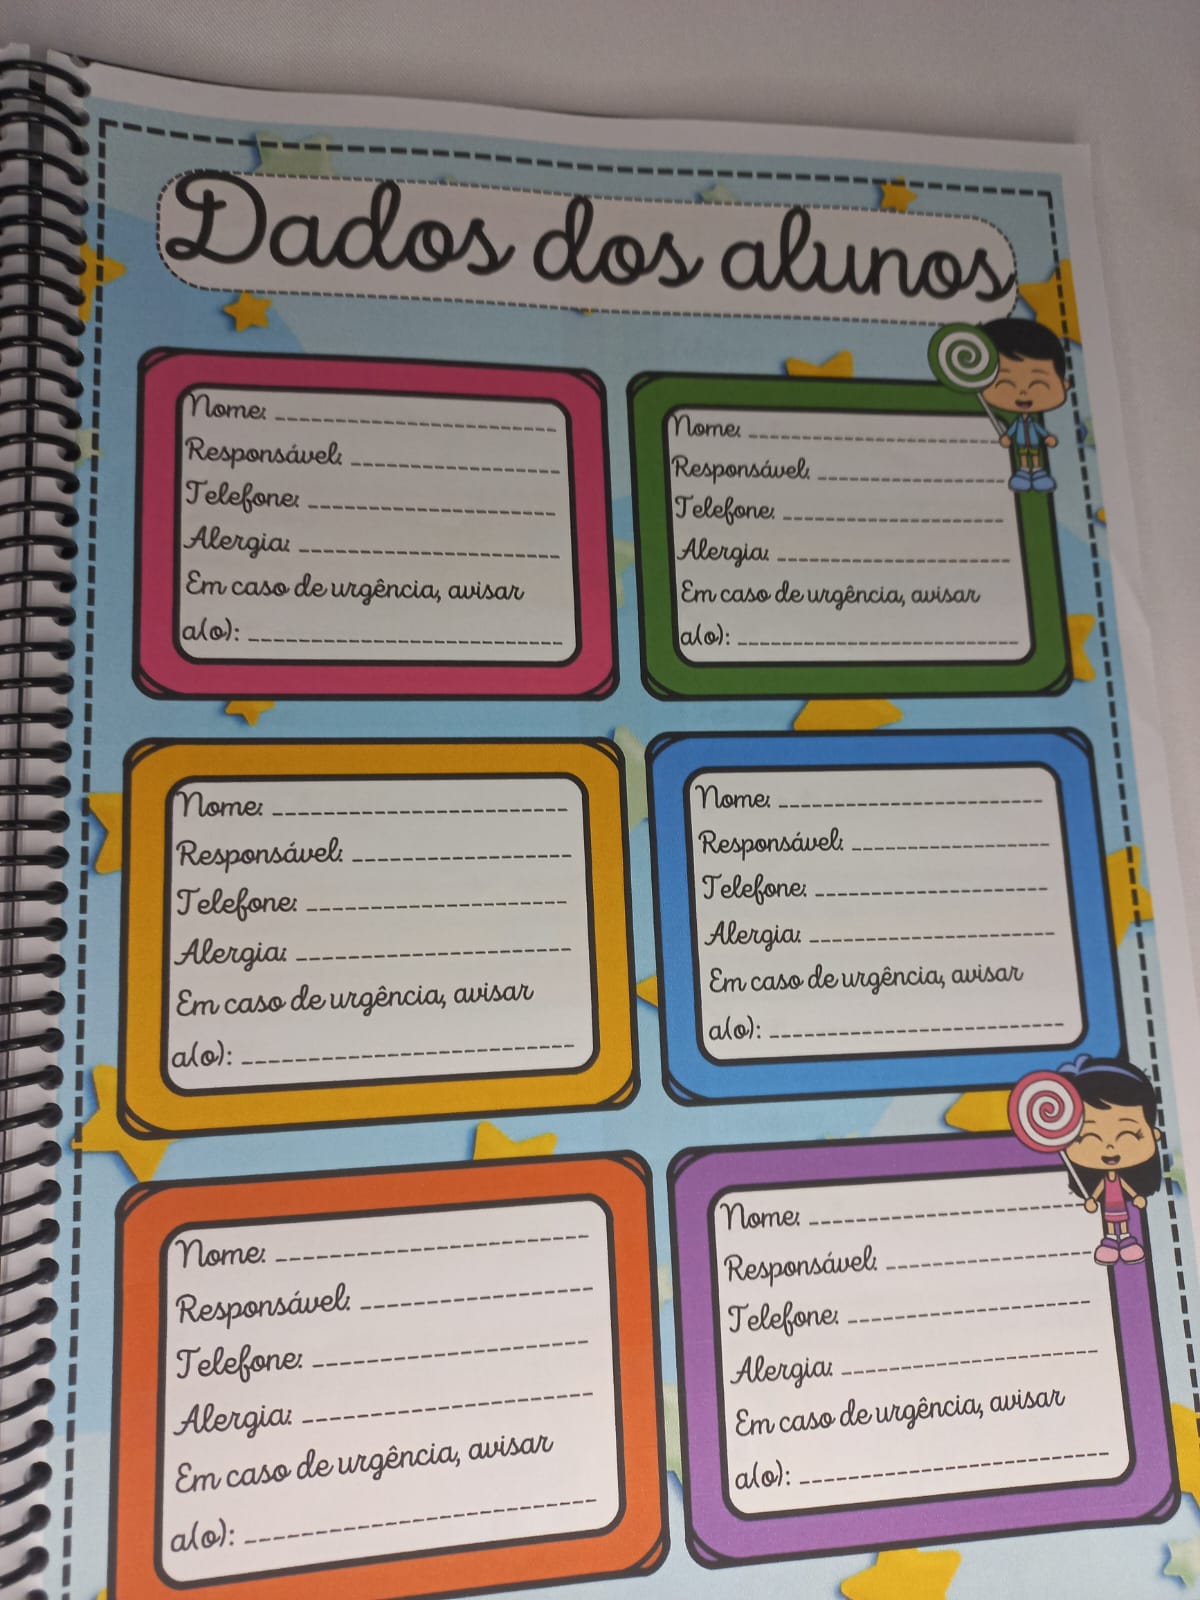 Dados dos alunos
Nome:
Responsável:
Telefone:
Alergia:
Em caso de urgência, avisar
a(o):
Nome:
Responsável:
Telefone:
Alergia:
Em caso de urgência, avisar
a(o):
Nome:
Responsável:
Telefone:
Alergia:
Em caso de urgência, avisar
a(o):
Nome:
Responsável:
Telefone:
Alergia:
Em caso de urgência, avisar
a(o):
Nome:
Responsável:
Telefone:
Alergia:
Em caso de urgência, avisar
a(o):
Nome:
Responsável:
Telefone:
Alergia:
Em caso de urgência, avisar
a(o):